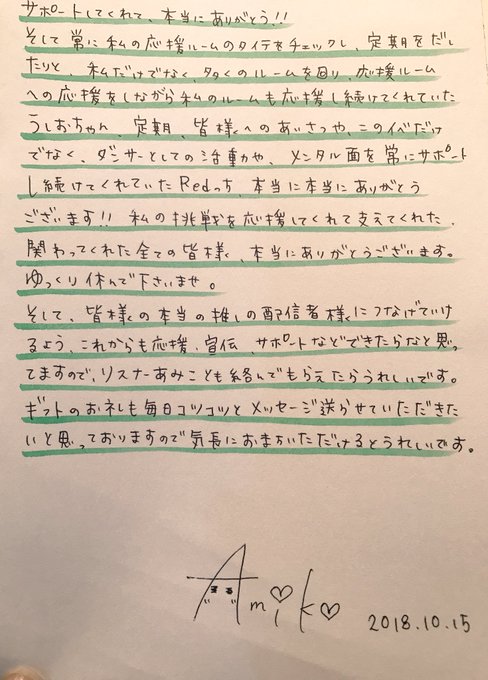 サポートしてくれて、本当にありがとう!!
そして常に私の応援ルームのタイテをチェックし、定期をだし
たりと、私だけでなく、多くのルームを回り、応援ルーム
への応援をしながら私のルームも応援し続けてくれていた
うしおちゃん、定期、皆様へのあいさつや、このイベだけ
でなく、ダンサーとしての活動や、メンタル面を常にサポート
し続けてくれていたRedっち、本当に本当にありがとう
ございます!! 私の挑戦を応援してくれて支えてくれた、
関わってくれた全ての皆様、本当にありがとうございます。
ゆっくり休んで下さいませ。
そして、皆様の本当の推しの配信者様につなげていけ
るよう、これからも応援、宣伝、サポートなどできたらなと思っ
てますので、リスナーあみことも絡んでもらえたらうれしいです。
ギフトのお礼も毎日コツコツとメッセージ送らせていただきた
いと思っておりますので気長におまちいただけるとうれしいです。
Amiko
2018.10.15